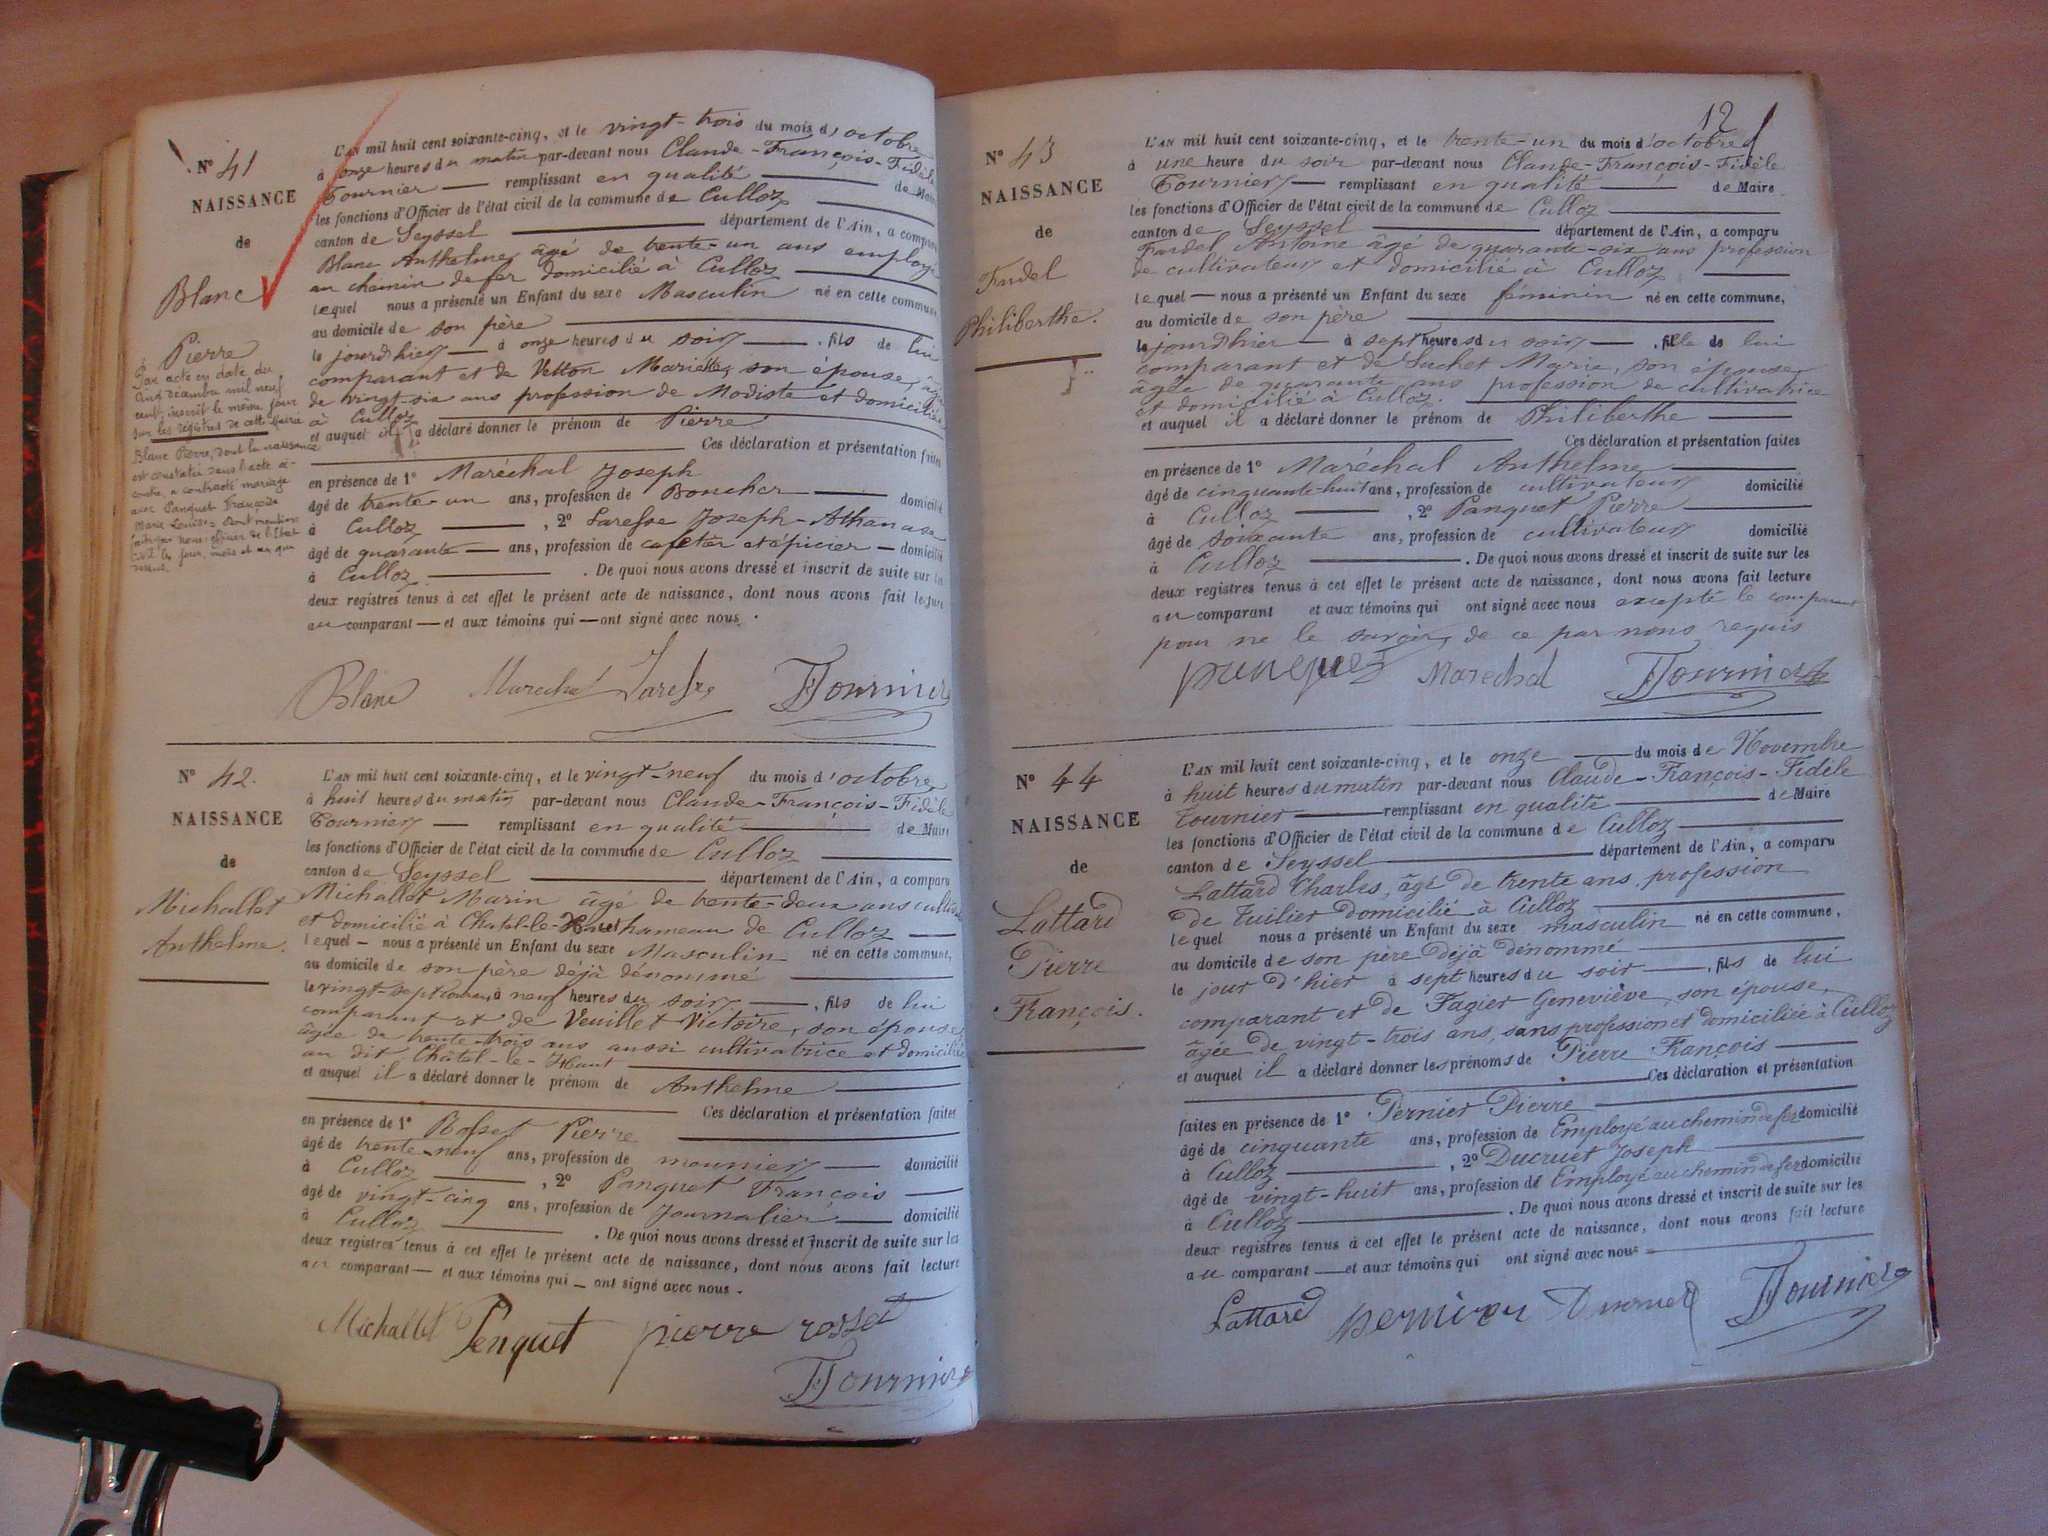 N° 41
NAISSANCE
de
Blanc
Pierre
Par acte en date du
cinq décembre mil neuf
cent, inscrit le même jour
sur les registres de cette Mairie
Blanc Pierre, dont la naissance
est constatée dans l'acte ci-
contre, a contracté mariage
avec Panquet Françoise
Marie Louise. Dont mention
faite par nous, officier de l'Etat
civil les jour, mois et an que
dessus.
L'AN mil huit cent soixante-cinq, et le vingt-trois du mois d'octobre
à onze heures du matin par-devant nous Claude-François-Fidèle
Tournier — remplissant en qualité — de Maire
les fonctions d'Officier de l'état civil de la commune de Culloz
canton de Seyssel — département de l'Ain, a comparu
Blanc Anthelme, âgé de trente-un ans employé
au chemin de fer domicilié à Culloz
lequel nous a présenté un Enfant du sexe Masculin né en cette commune,
au domicile de son père
le jour d'hier — à onze heures du soir — , fils de lui
comparant et de Vetton Mariette, son épouse, âgée
de vingt-six ans profession de Modiste et domiciliée
à Culloz
et auquel il a déclaré donner le prénom de Pierre
Ces déclaration et présentation faites
en présence de 1° Maréchal Joseph
âgé de trente-un ans, profession de Boucher — domicilié
à Culloz — , 2° Laresse Joseph-Athanase
âgé de quarante — ans, profession de cafetier et épicier — domicilié
à Culloz — . De quoi nous avons dressé et inscrit de suite sur les
deux registres tenus à cet effet le présent acte de naissance, dont nous avons fait lecture
au comparant — et aux témoins qui — ont signé avec nous.
Blanc Marechal Laresse Tournier
N° 42.
NAISSANCE
de
Michallet
Anthelme.
L'AN mil huit cent soixante-cinq, et le vingt-neuf du mois d'octobre
à huit heures du matin par-devant nous Claude-François-Fidèle
Tournier — remplissant en qualité — de Maire
les fonctions d'Officier de l'état civil de la commune de Culloz
canton de Seyssel — département de l'Ain, a comparu
Michallet Marin âgé de trente-deux ans
et domicilié à Chatel-le-Haut hameau de Culloz
lequel — nous a présenté un Enfant du sexe Masculin né en cette commune,
au domicile de son père déjà dénommé
le vingt-sept à neuf heures du soir — , fils de lui
comparant et de Veuillet Victoire, son épouse
âgée de trente-trois ans aussi cultivatrice et domiciliée
au dit Châtel-le-Haut
et auquel il a déclaré donner le prénom de Anthelme
Ces déclaration et présentation faites
en présence de 1° Rosset Pierre
âgé de trente-neuf ans, profession de meunier — domicilié
à Culloz — , 2° Panquet François
âgé de vingt-cinq ans, profession de Journalier — domicilié
à Culloz — . De quoi nous avons dressé et inscrit de suite sur les
deux registres tenus à cet effet le présent acte de naissance, dont nous avons fait lecture
au comparant — et aux témoins qui — ont signé avec nous.
Michallet Penquet pierre rosset
Tournier
12
N° 43
NAISSANCE
de
Fudel
Philiberthe.
L'AN mil huit cent soixante-cinq, et le trente-un du mois d'octobre
à une heure du soir par-devant nous Claude-François-Fidèle
Tournier — remplissant en qualité — de Maire
les fonctions d'Officier de l'état civil de la commune de Culloz
canton de Seyssel — département de l'Ain, a comparu
Fudel Antoine âgé de quarante-six ans profession
de cultivateur et domicilié à Culloz
lequel — nous a présenté un Enfant du sexe féminin né en cette commune,
au domicile de son père
le jour d'hier — à sept heures du soir — , fille de lui
comparant et de Suchet Marie, son épouse,
âgée de quarante ans profession de cultivatrice
et domicilié à Culloz.
et auquel il a déclaré donner le prénom de Philiberthe
Ces déclaration et présentation faites
en présence de 1° Maréchal Anthelme
âgé de cinquante-huit ans, profession de cultivateur domicilié
à Culloz — , 2° Panquet Pierre
âgé de soixante ans, profession de cultivateur domicilié
à Culloz — . De quoi nous avons dressé et inscrit de suite sur les
deux registres tenus à cet effet le présent acte de naissance, dont nous avons fait lecture
au comparant et aux témoins qui ont signé avec nous excepté le comparant
pour ne le savoir, de ce par nous requis
Marechal Tournier
N° 44
NAISSANCE
de
Lattard
Pierre
François.
L'AN mil huit cent soixante-cinq, et le onze — du mois de Novembre
à huit heures du matin par-devant nous Claude-François-Fidèle
Tournier — remplissant en qualité — de Maire
les fonctions d'Officier de l'état civil de la commune de Culloz
canton de Seyssel — département de l'Ain, a comparu
Lattard Charles, âgé de trente ans, profession
de Tuilier domicilié à Culloz
lequel nous a présenté un Enfant du sexe masculin né en cette commune,
au domicile de son père déjà dénommé
le jour d'hier à sept heures du soir — , fils de lui
comparant et de Fagier Geneviève, son épouse,
âgée de vingt-trois ans, sans profession et domiciliée à Culloz
et auquel il a déclaré donner les prénoms de Pierre François
Ces déclaration et présentation
faites en présence de 1° Pernier Pierre
âgé de cinquante ans, profession de Employé au chemin de fer domicilié
à Culloz — , 2° Ducruet Joseph
âgé de vingt-huit ans, profession de Employé au chemin de fer domicilié
à Culloz — . De quoi nous avons dressé et inscrit de suite sur les
deux registres tenus à cet effet le présent acte de naissance, dont nous avons fait lecture
au comparant — et aux témoins qui ont signé avec nous
Lattard Tournier